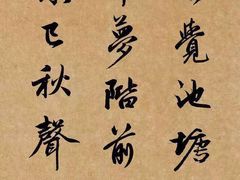 覺池塘
夢階前
已秋聲